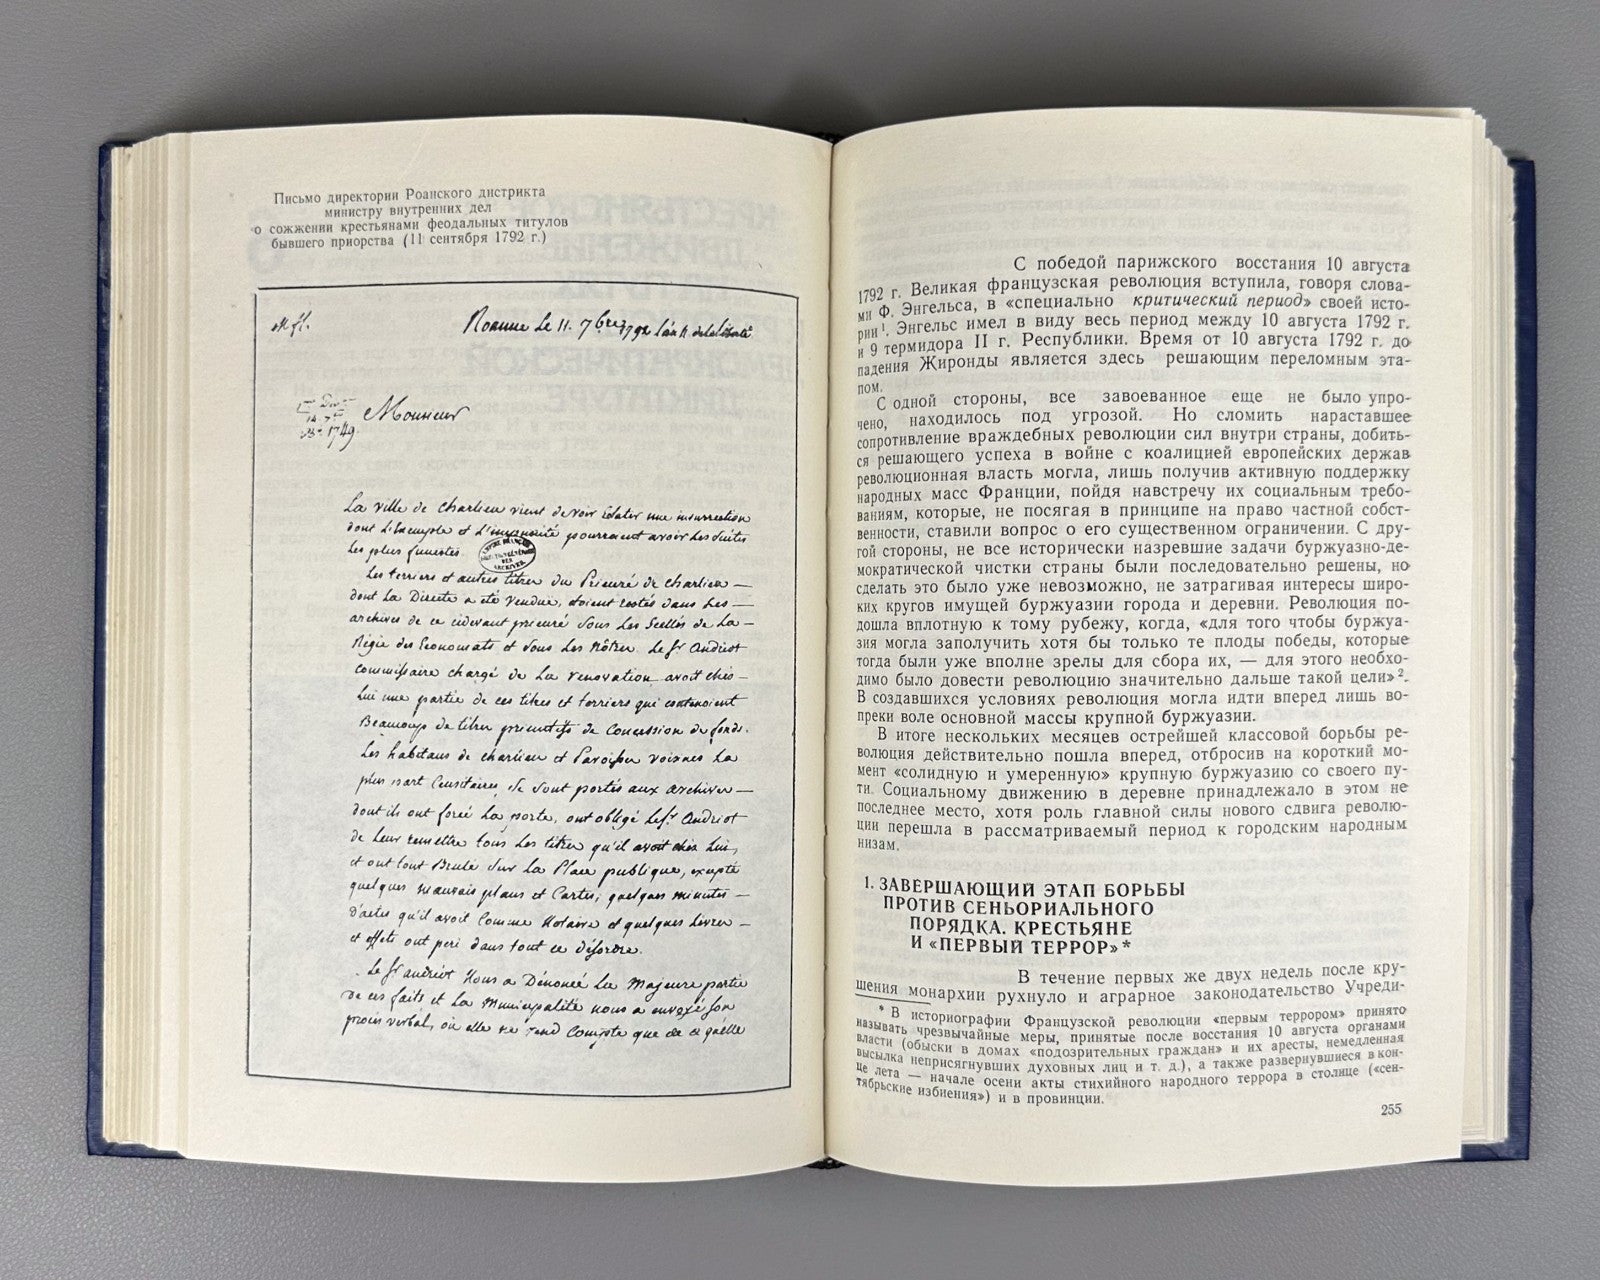 Письмо директории Роанского дистрикта
министру внутренних дел
о сожжении крестьянами феодальных титулов
бывшего приорства (11 сентября 1792 г.)
Roanne Le 11. 7bre 1792 l'an 4 de la liberté
1749.
Monsieur
La ville de charlieu vient de voir éclater une insurrection
dont L'Exemple et L'impunité pourraient avoir Les Suites
Les plus funestes.
Les terriers et autres titres du Prieuré de charlieu —
dont La Directe a été vendue, étoient restés dans Les —
archives de ce cidevant prieuré Sous Les Scellés de La —
Régie des Economats et Sous Les Nôtres. Le Sr Andriot
commissaire chargé de La renovation avoit chés —
Lui une partie de ces titres et terriers qui contenoient
Beaucoup de titres primitifs de Concession de fonds.
Les habitans de charlieu et Paroisses voisines La
plus part Censitaires, Se Sont portés aux archives —
dont ils ont forcé La porte, ont obligé Le Sr Andriot
de Leur remettre tous Les titres qu'il avoit chés Lui,
et ont tout Brulé Sur La Place publique, excepté
quelques mauvais plans et Cartes, quelques minutes —
d'actes qu'il avoit Comme Notaire et quelques Livres —
et effets ont peri dans tout ce désordre.
Le Sr andriot Nous a Dénoncé La Majeure partie
de ces faits et La Municipalité nous a envoyé Son
procès verbal, où elle ne rend Compte que de ce qu'elle
С победой парижского восстания 10 августа
1792 г. Великая французская революция вступила, говоря слова-
ми Ф. Энгельса, в «специально критический период» своей исто-
рии¹. Энгельс имел в виду весь период между 10 августа 1792 г.
и 9 термидора II г. Республики. Время от 10 августа 1792 г. до
падения Жиронды является здесь решающим переломным эта-
пом.
С одной стороны, все завоеванное еще не было упро-
чено, находилось под угрозой. Но сломить нараставшее
сопротивление враждебных революции сил внутри страны, добить-
ся решающего успеха в войне с коалицией европейских держав
революционная власть могла, лишь получив активную поддержку
народных масс Франции, пойдя навстречу их социальным требо-
ваниям, которые, не посягая в принципе на право частной собст-
венности, ставили вопрос о его существенном ограничении. С дру-
гой стороны, не все исторически назревшие задачи буржуазно-де-
мократической чистки страны были последовательно решены, но
сделать это было уже невозможно, не затрагивая интересы широ-
ких кругов имущей буржуазии города и деревни. Революция по-
дошла вплотную к тому рубежу, когда, «для того чтобы буржуа-
зия могла заполучить хотя бы только те плоды победы, которые
тогда были уже вполне зрелы для сбора их, — для этого необхо-
димо было довести революцию значительно дальше такой цели»².
В создавшихся условиях революция могла идти вперед лишь во-
преки воле основной массы крупной буржуазии.
В итоге нескольких месяцев острейшей классовой борьбы ре-
волюция действительно пошла вперед, отбросив на короткий мо-
мент «солидную и умеренную» крупную буржуазию со своего пу-
ти. Социальному движению в деревне принадлежало в этом не
последнее место, хотя роль главной силы нового сдвига револю-
ции перешла в рассматриваемый период к городским народным
низам.
1. ЗАВЕРШАЮЩИЙ ЭТАП БОРЬБЫ
ПРОТИВ СЕНЬОРИАЛЬНОГО
ПОРЯДКА. КРЕСТЬЯНЕ
И «ПЕРВЫЙ ТЕРРОР»*
В течение первых же двух недель после кру-
шения монархии рухнуло и аграрное законодательство Учреди-
* В историографии Французской революции «первым террором» принято
называть чрезвычайные меры, принятые после восстания 10 августа органами
власти (обыски в домах «подозрительных граждан» и их аресты, немедленная
высылка неприсягнувших духовных лиц и т. д.), а также развернувшиеся в кон-
це лета — начале осени акты стихийного народного террора в столице («сен-
тябрьские избиения») и в провинции.
255